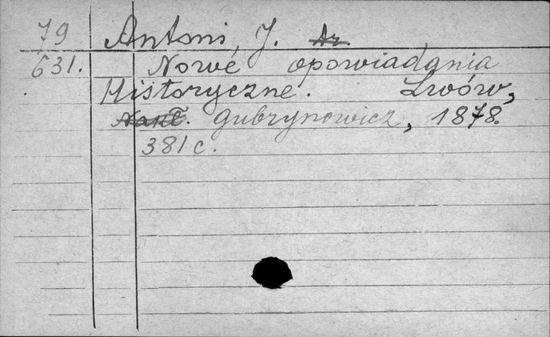 79 Antoni, J. Dr.
631. Nowe opowiadania
Historyczne. Lwów,
Nakł. Gubrynowicz, 1878.
381 c.